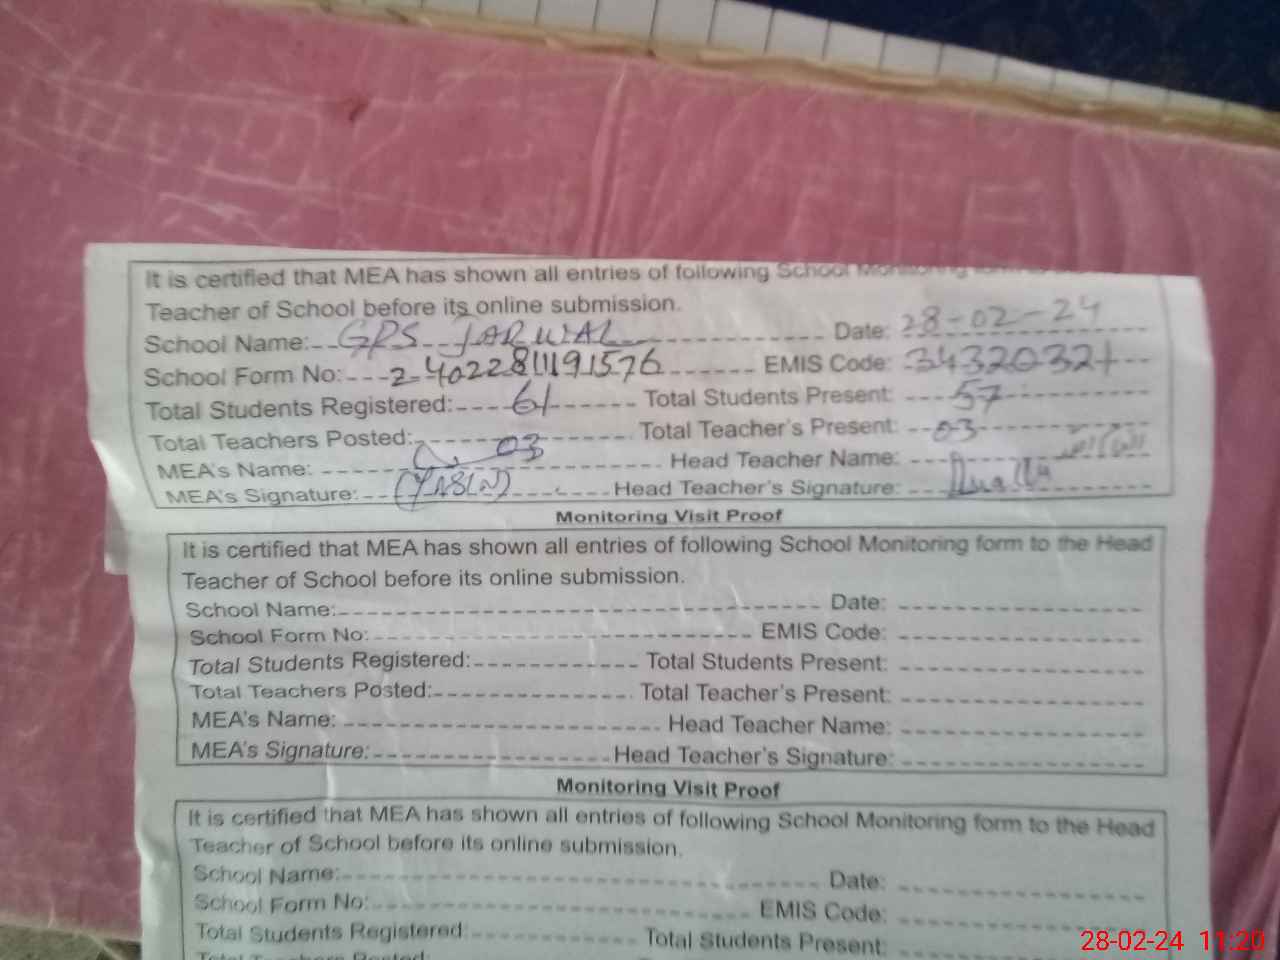 It is certified that MEA has shown all entries of following School Monitoring form to
Teacher of School before its online submission.
School Name: GPS JARWAL Date: 28-02-24
School Form No: 2-4022811191576 EMIS Code: 3432032+
Total Students Registered: 61 Total Students Present: 57
Total Teachers Posted: 03 Total Teacher's Present: 03
MEA's Name: Head Teacher Name:
MEA's Signature: (YASIN) Head Teacher's Signature:
Monitoring Visit Proof
It is certified that MEA has shown all entries of following School Monitoring form to the Head
Teacher of School before its online submission.
School Name: Date:
School Form No: EMIS Code:
Total Students Registered: Total Students Present:
Total Teachers Posted: Total Teacher's Present:
MEA's Name: Head Teacher Name:
MEA's Signature: Head Teacher's Signature:
Monitoring Visit Proof
It is certified that MEA has shown all entries of following School Monitoring form to the Head
Teacher of School before its online submission.
School Name: Date:
School Form No: EMIS Code:
Total Students Registered: Total Students Present:
Total Teachers Posted:
28-02-24 11:20